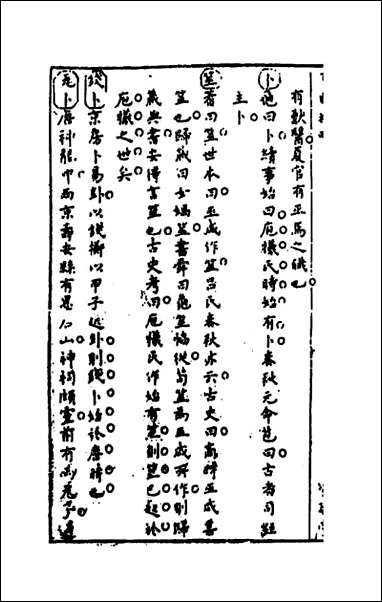 有獸醫夏官有巫馬之職也
卜 他曰卜續事始曰庖犧氏時始有卜春秋元命苞曰古者司
主卜
筮 者曰筮世本曰巫咸作筮吕氏春秋亦云古史曰高辛巫咸善
筮也歸藏曰女媧筮書舜曰龜筮協從苟筮爲巫咸所作則歸
藏與書安得言筮也古史考曰庖犧氏作始有筮則筮已起於
庖犧之世矣
錢卜 京房卜易卦以錢擲以甲子起卦則錢卜始於房時也
瓦卜 唐神龍中西京壽安縣有墨石山神祠頗靈前有兩瓦子過